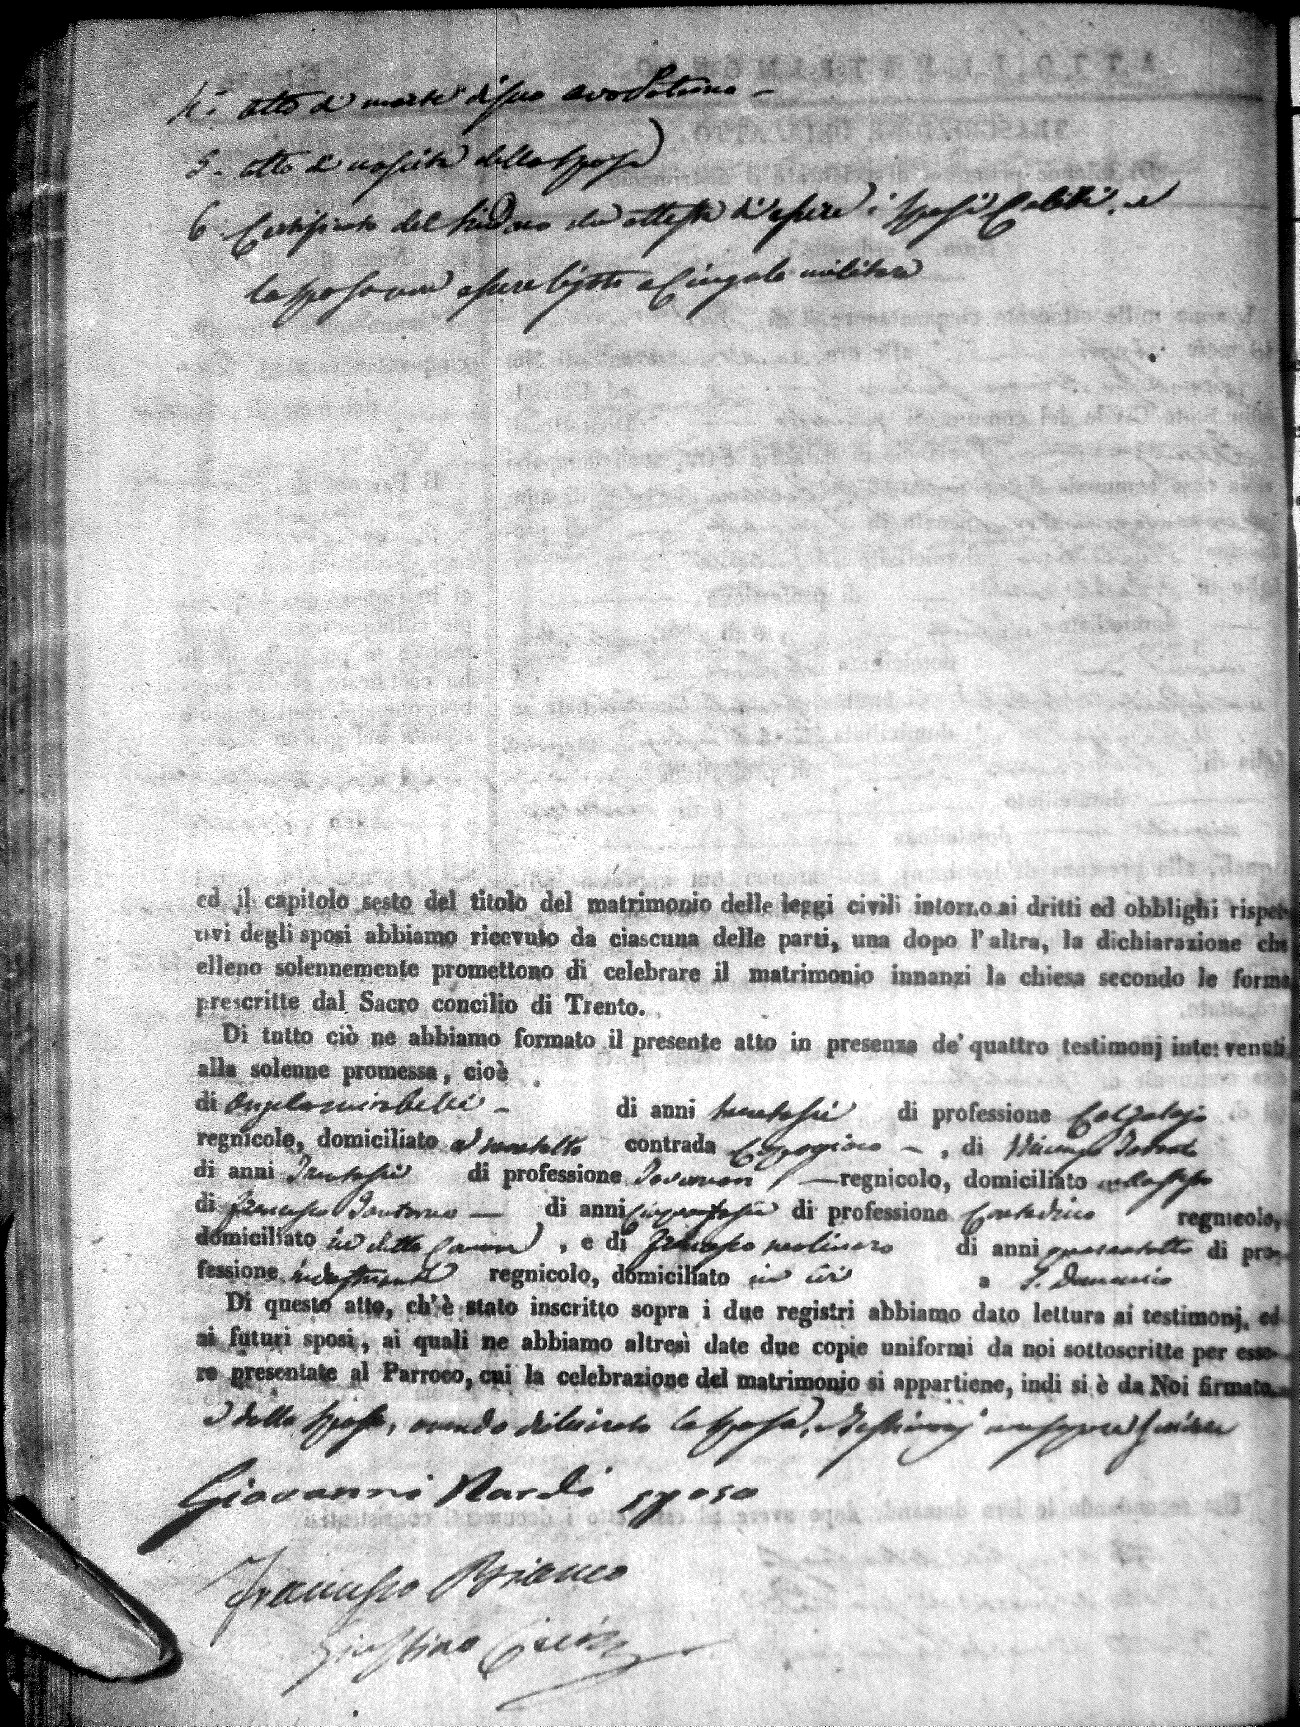 4. atto di morte di suo avo Paterno -
5. atto di nascita della sposa
6 Certificato del Sindaco che attesta di essere i sposi Celibi, e
lo sposo non essere soggetto a Cingolo militare
ed il capitolo sesto del titolo del matrimonio delle leggi civili intorno ai dritti ed obblighi rispet-
tivi degli sposi abbiamo ricevuto da ciascuna delle parti, una dopo l'altra, la dichiarazione che
elleno solennemente promettono di celebrare il matrimonio innanzi la chiesa secondo le forme
prescritte dal Sacro concilio di Trento.
Di tutto ciò ne abbiamo formato il presente atto in presenza de' quattro testimonj intervenuti
alla solenne promessa, cioè
di Angelo Mirabelli - di anni trentasei di professione Calzolajo
regnicolo, domiciliato contrada -, di Vincenzo
di anni Trentasei di professione - regnicolo, domiciliato
di Francesco - di anni Cinquantasei di professione Contadino regnicolo,
domiciliato in detto Comune, e di Francesco Molinaro di anni quarantotto di pro-
fessione regnicolo, domiciliato in a S.
Di questo atto, ch'è stato inscritto sopra i due registri abbiamo dato lettura ai testimonj, ed
ai futuri sposi, ai quali ne abbiamo altresì date due copie uniformi da noi sottoscritte per esse-
re presentate al Parroco, cui la celebrazione del matrimonio si appartiene, indi si è da Noi firmato
e dallo sposo, avendo dichiarato la sposa, e testimonj non sapere scrivere
Giovanni Nardi sposo
Francesco Bianco
Giustino